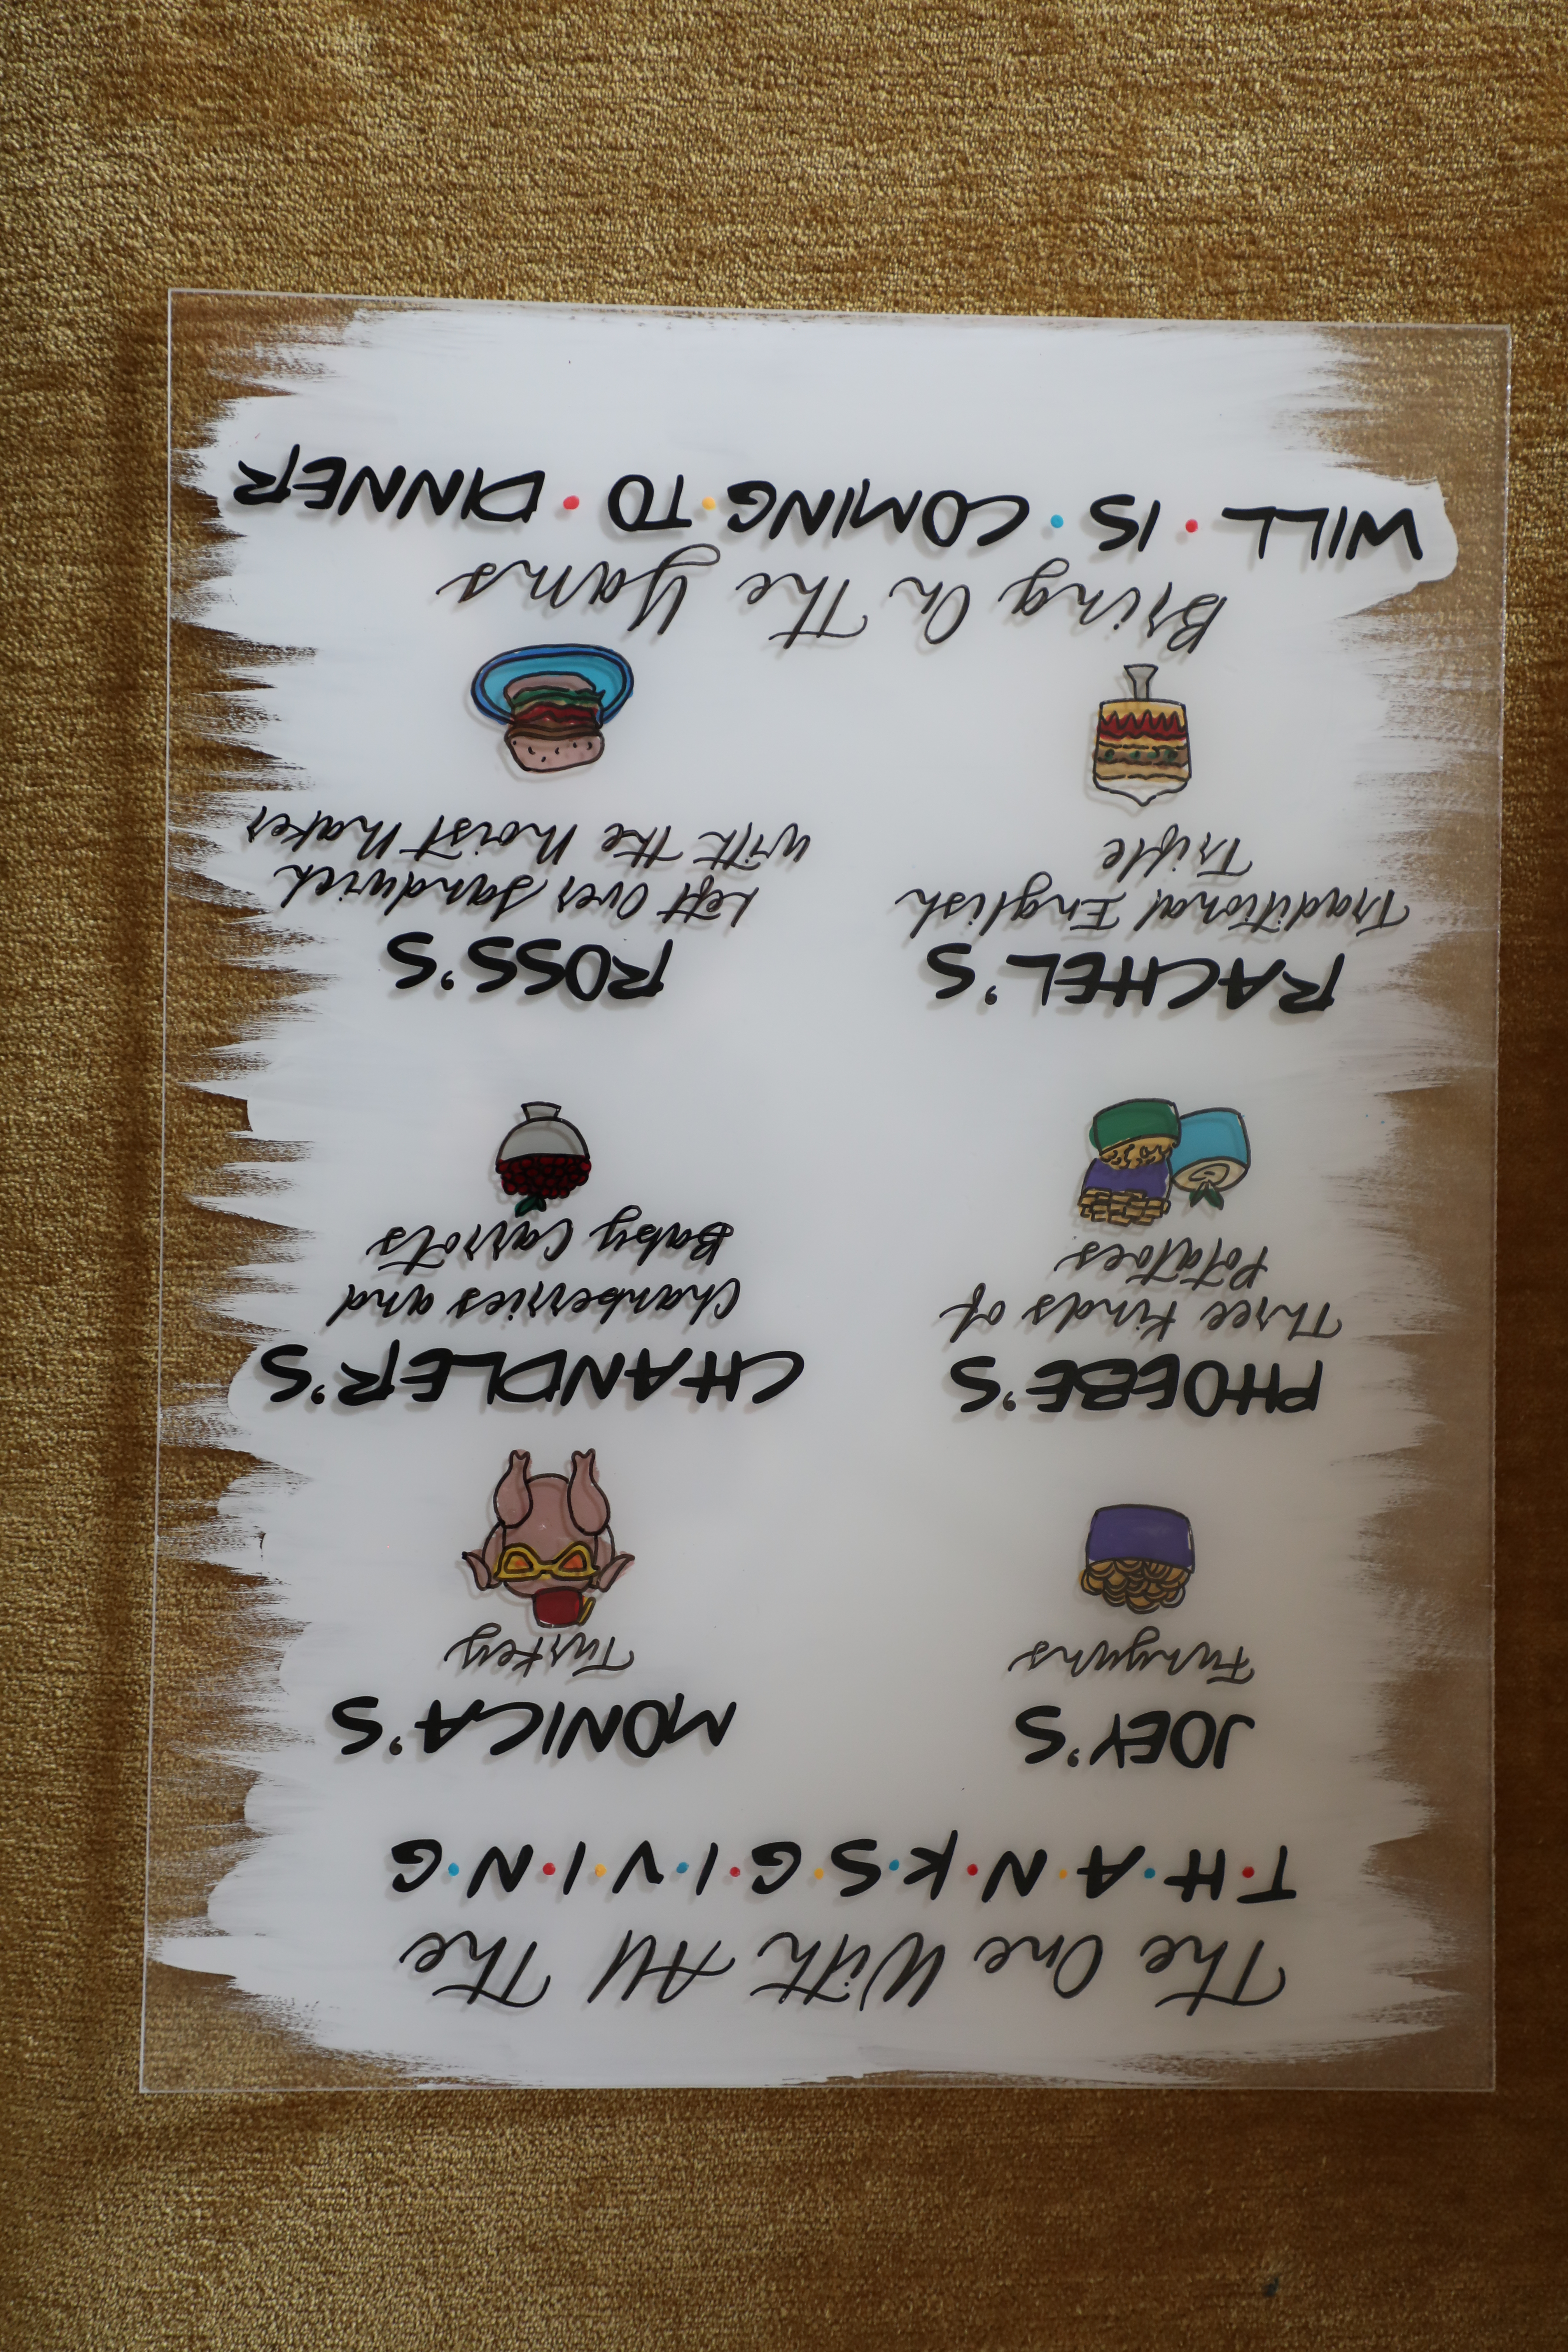 The One With All The
T·H·A·N·K·S·G·I·V·I·N·G
JOEY'S
Funyuns
MONICA'S
Turkey
PHOEBE'S
Three Kinds of
Potatoes
CHANDLER'S
Chanberries and
Baby Carrots
RACHEL'S
Traditional English
Trifle
ROSS'S
Left Over Sandwich
with the Moist Maker
Bring On The Yams
WILL · IS · COMING · TO · DINNER